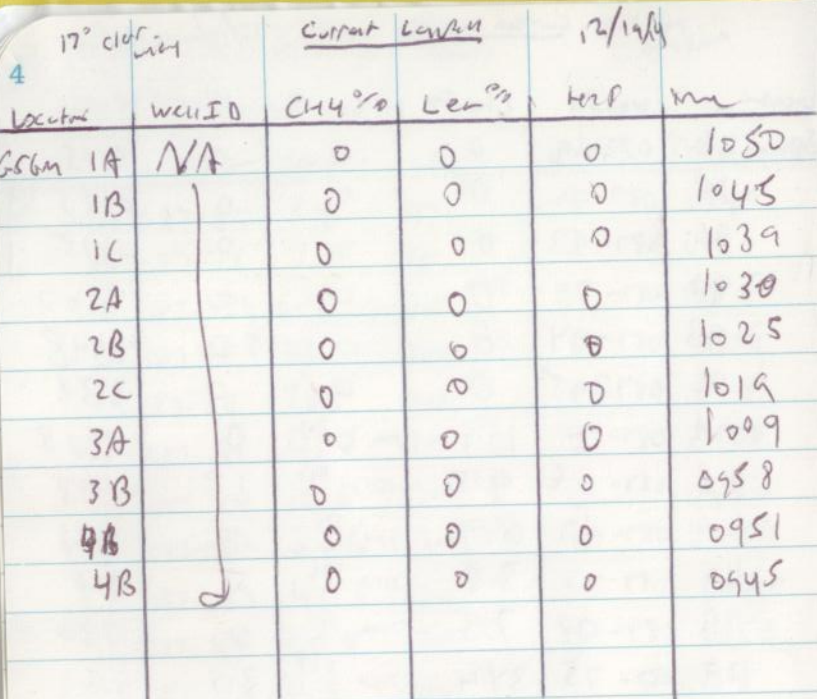 17° Current 12/19/19
4
Location Well ID CH4 % LEL % Time
GSGM 1A NA 0 0 0 1050
1B 0 0 0 1045
1C 0 0 0 1039
2A 0 0 0 1030
2B 0 0 0 1025
2C 0 0 0 1019
3A 0 0 0 1009
3B 0 0 0 0958
0 0 0 0951
4B 0 0 0 0945